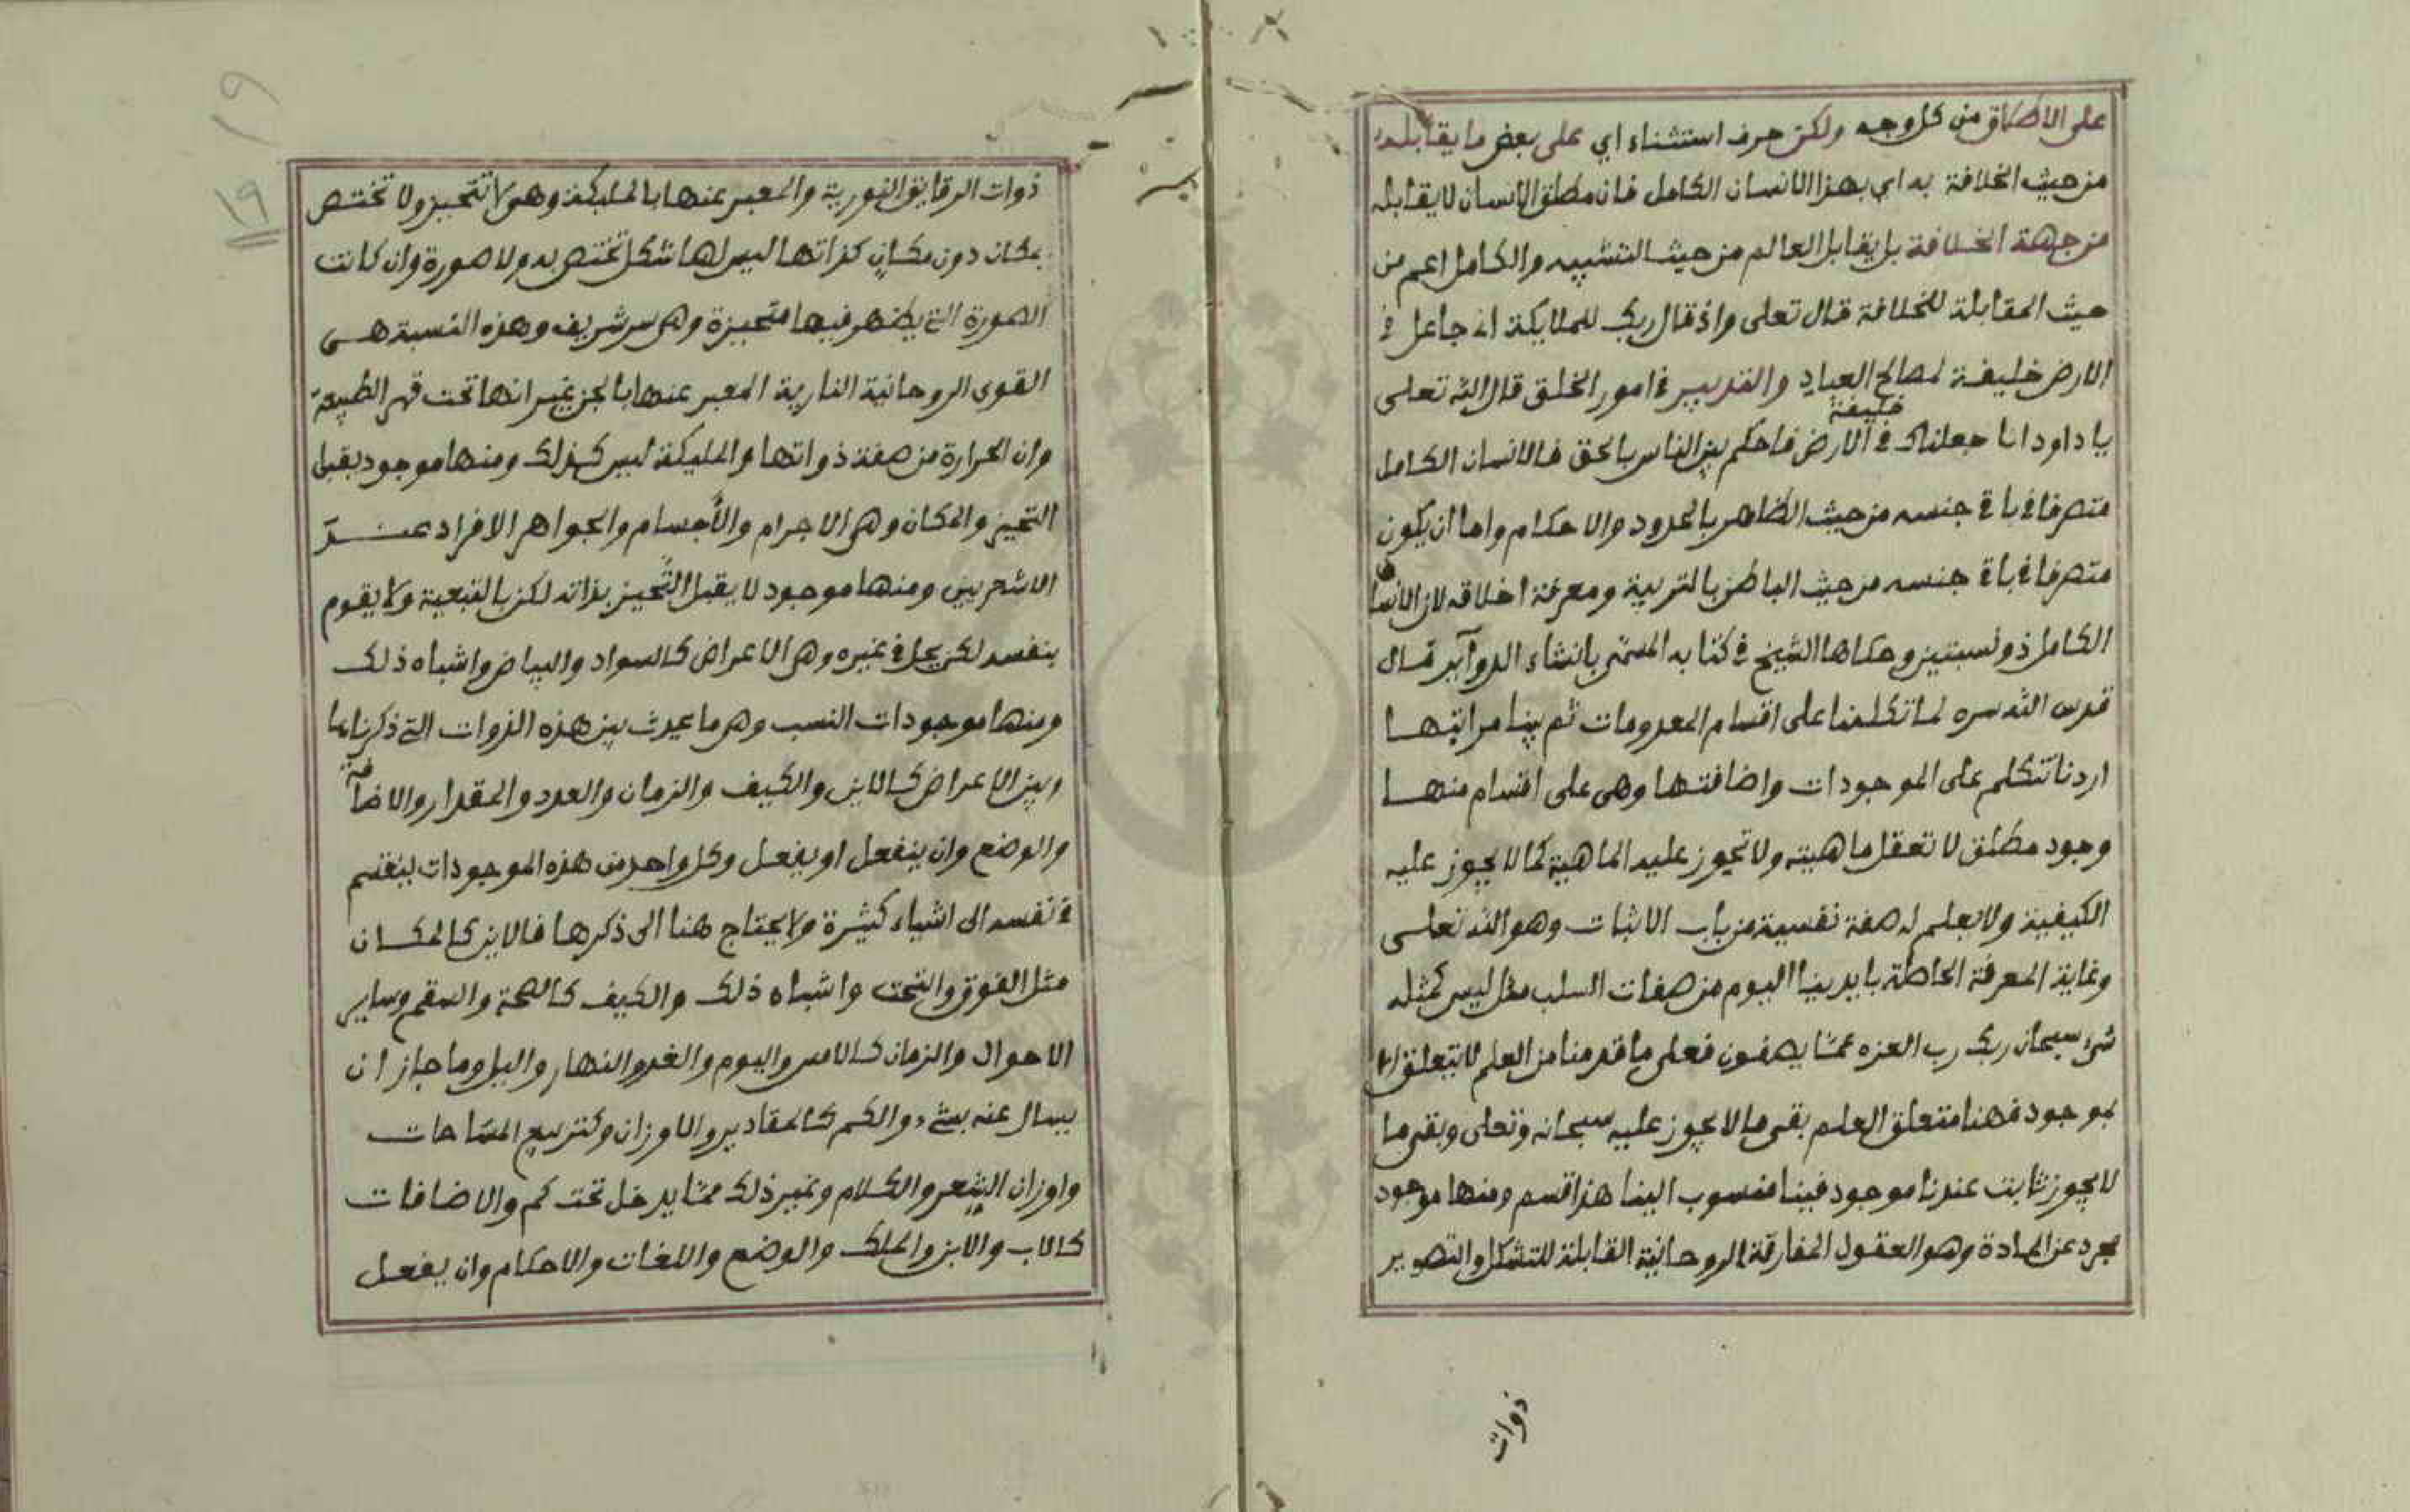 على الاطلاق من كل وجه ولكن حرف استثناء اي على بعض ما يقابله
من حيث الخلافة به اي بهذا الانسان الكامل فان مطلق الانسان لا يقابله
من جهة الخلافة بل يقابل العالم من حيث التشبيه والكامل اعم من
حيث المقابلة للخلافة قال تعلى واذ قال ربك للملايكة انى جاعل فى
الارض خليفة لمصالح العباد والتدبير فى امور الخلق قال الله تعلى
يا داود انا جعلناك خليفة فى الارض فاحكم بين الناس بالحق فالانسان الكامل
متصرفا فى باقى جنسه من حيث الظاهر بالحدود والاحكام واما ان يكون
متصرفا فى باقى جنسه من حيث الباطن بالتربية ومعرفة اخلاقه لان الانسان
الكامل ذو نسبتين وحكاها الشيخ فى كتابه المسمى بانشاء الدوآير قال
قدس الله سره لما تكلمنا على اقسام المعدومات ثم بينا مراتبها
اردنا نتكلم على الموجودات واضافتها وهى على اقسام منها
وجود مطلق لا تعقل ماهيته ولا تجوز عليه الماهية كما لا يجوز عليه
الكيفية ولا يعلم له صفة نفسية من باب الاثبات وهو الله تعلى
وغاية المعرفة الحاطة بايدينا اليوم من صفات السلب مثل ليس كمثله
شىء سبحان ربك رب العزه عمّا يصفون فعلى ما قدمنا من العلم لا يتعلق الا
بموجود فهنا متعلق العلم بقى ما لا يجوز عليه سبحانه وتعلى وبقى ما
لا يجوز ثابت عندنا موجود فينا منسوب الينا هذا قسم ومنها موجود
مجرد عن المادة وهو العقول المفارقة الروحانية القابلة للتشكل والتصوير
ذوات
١٩
١٩
ذوات الرقايق النورية والمعبر عنها بالمليكة وهى لا تتحيز ولا تختص
بمكان دون مكان كذاتها ليس لها شكل تختص به ولا صورة وان كانت
الصورة التى يظهر فيها متحيزة وهى سر شريف وهذه النسبة هى
القوى الروحانية النارية المعبر عنها بالجن غير انها تحت قهر الطبيعة
وان الحرارة من صفة ذواتها والمليكة ليس كذلك ومنها موجود يقبل
التحيز والمكان وهى الاجرام والأجسام والجواهر الافراد عند
الاشعريين ومنها موجود لا يقبل التّحيز بذاته لكن بالتبعية ولا يقوم
بنفسه لكن يحل فى غيره وهى الاعراض كالسواد والبياض واشباه ذلك
ومنها موجودات النسب وهى ما يحدث بين هذه الذوات التى ذكرناها
وبين الاعراض كالاين والكيف والزمان والعدد والمقدار والاضافة
والوضع وان ينفعل او يفعل وكل واحد من هذه الموجودات ينقسم
فى نفسه الى اشياء كثيرة ولا يحتاج هنا الى ذكرها فالاين كالمكان
مثل الفوق والتحت واشباه ذلك والكيف كالصحة والسقم وساير
الاحوال والزمان كالامس واليوم والغد والنهار واليل وما جاز ان
يسال عنه بمتى والكم كالمقادير والاوزان وكتربيع المسّاحات
واوزان الشعر والكلام وغير ذلك ممّا يدخل تحت كم والاضافات
كالاب والابن والملك والوضع واللغات والاحكام وان يفعل